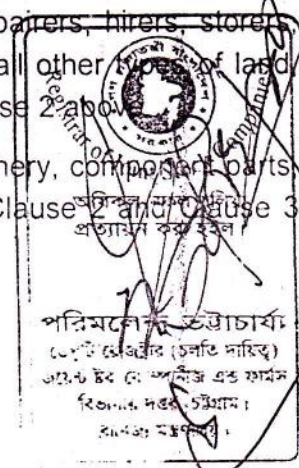 pairers, hirers, storers,
all other types of land,
Clause 2 above
ery, component parts
Clause 2 and Clause 3
Registrar of Companies
প্রত্যায়ন করা হইল।
পরিমলেন্দু ভট্টাচার্য্য
ডেপুটি রেজিষ্ট্রার (চলতি দায়িত্ব)
জয়েন্ট ষ্টক কোম্পানীজ এন্ড ফার্মস
বিভাগীয় দপ্তর, চট্টগ্রাম।
বাণিজ্য মন্ত্রণালয়।